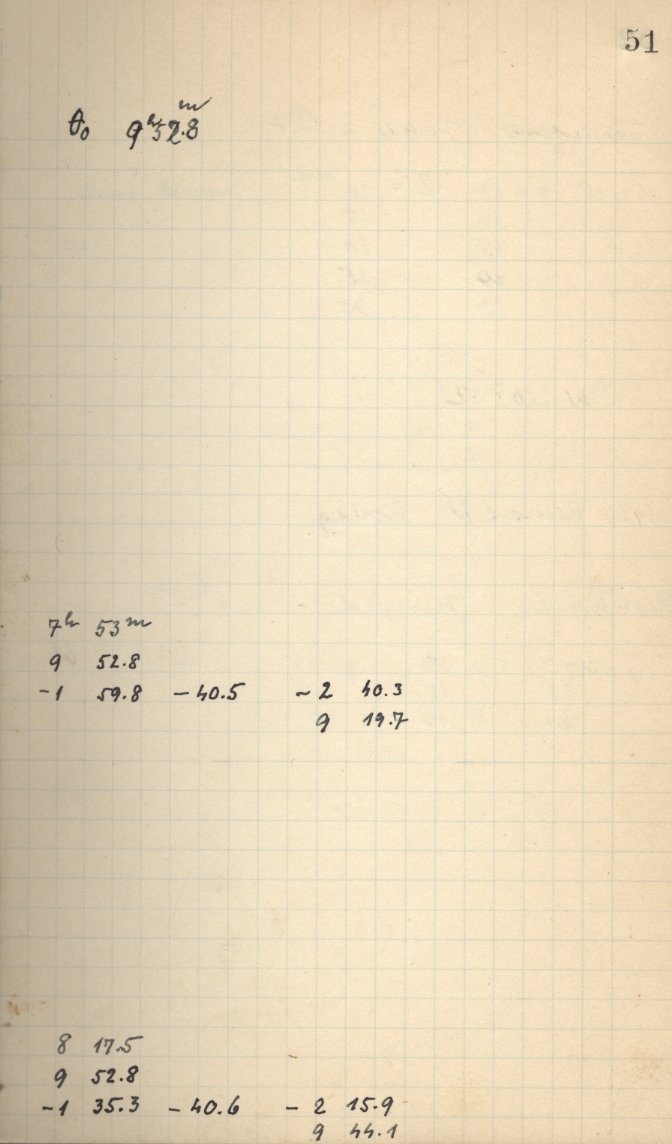 51
θ₀ 9ʰ52.8ᵐ
7ʰ 53ᵐ
9 52.8
-1 59.8 -40.5 -2 40.3
9 19.7
8 17.5
9 52.8
-1 35.3 -40.6 -2 15.9
9 44.1